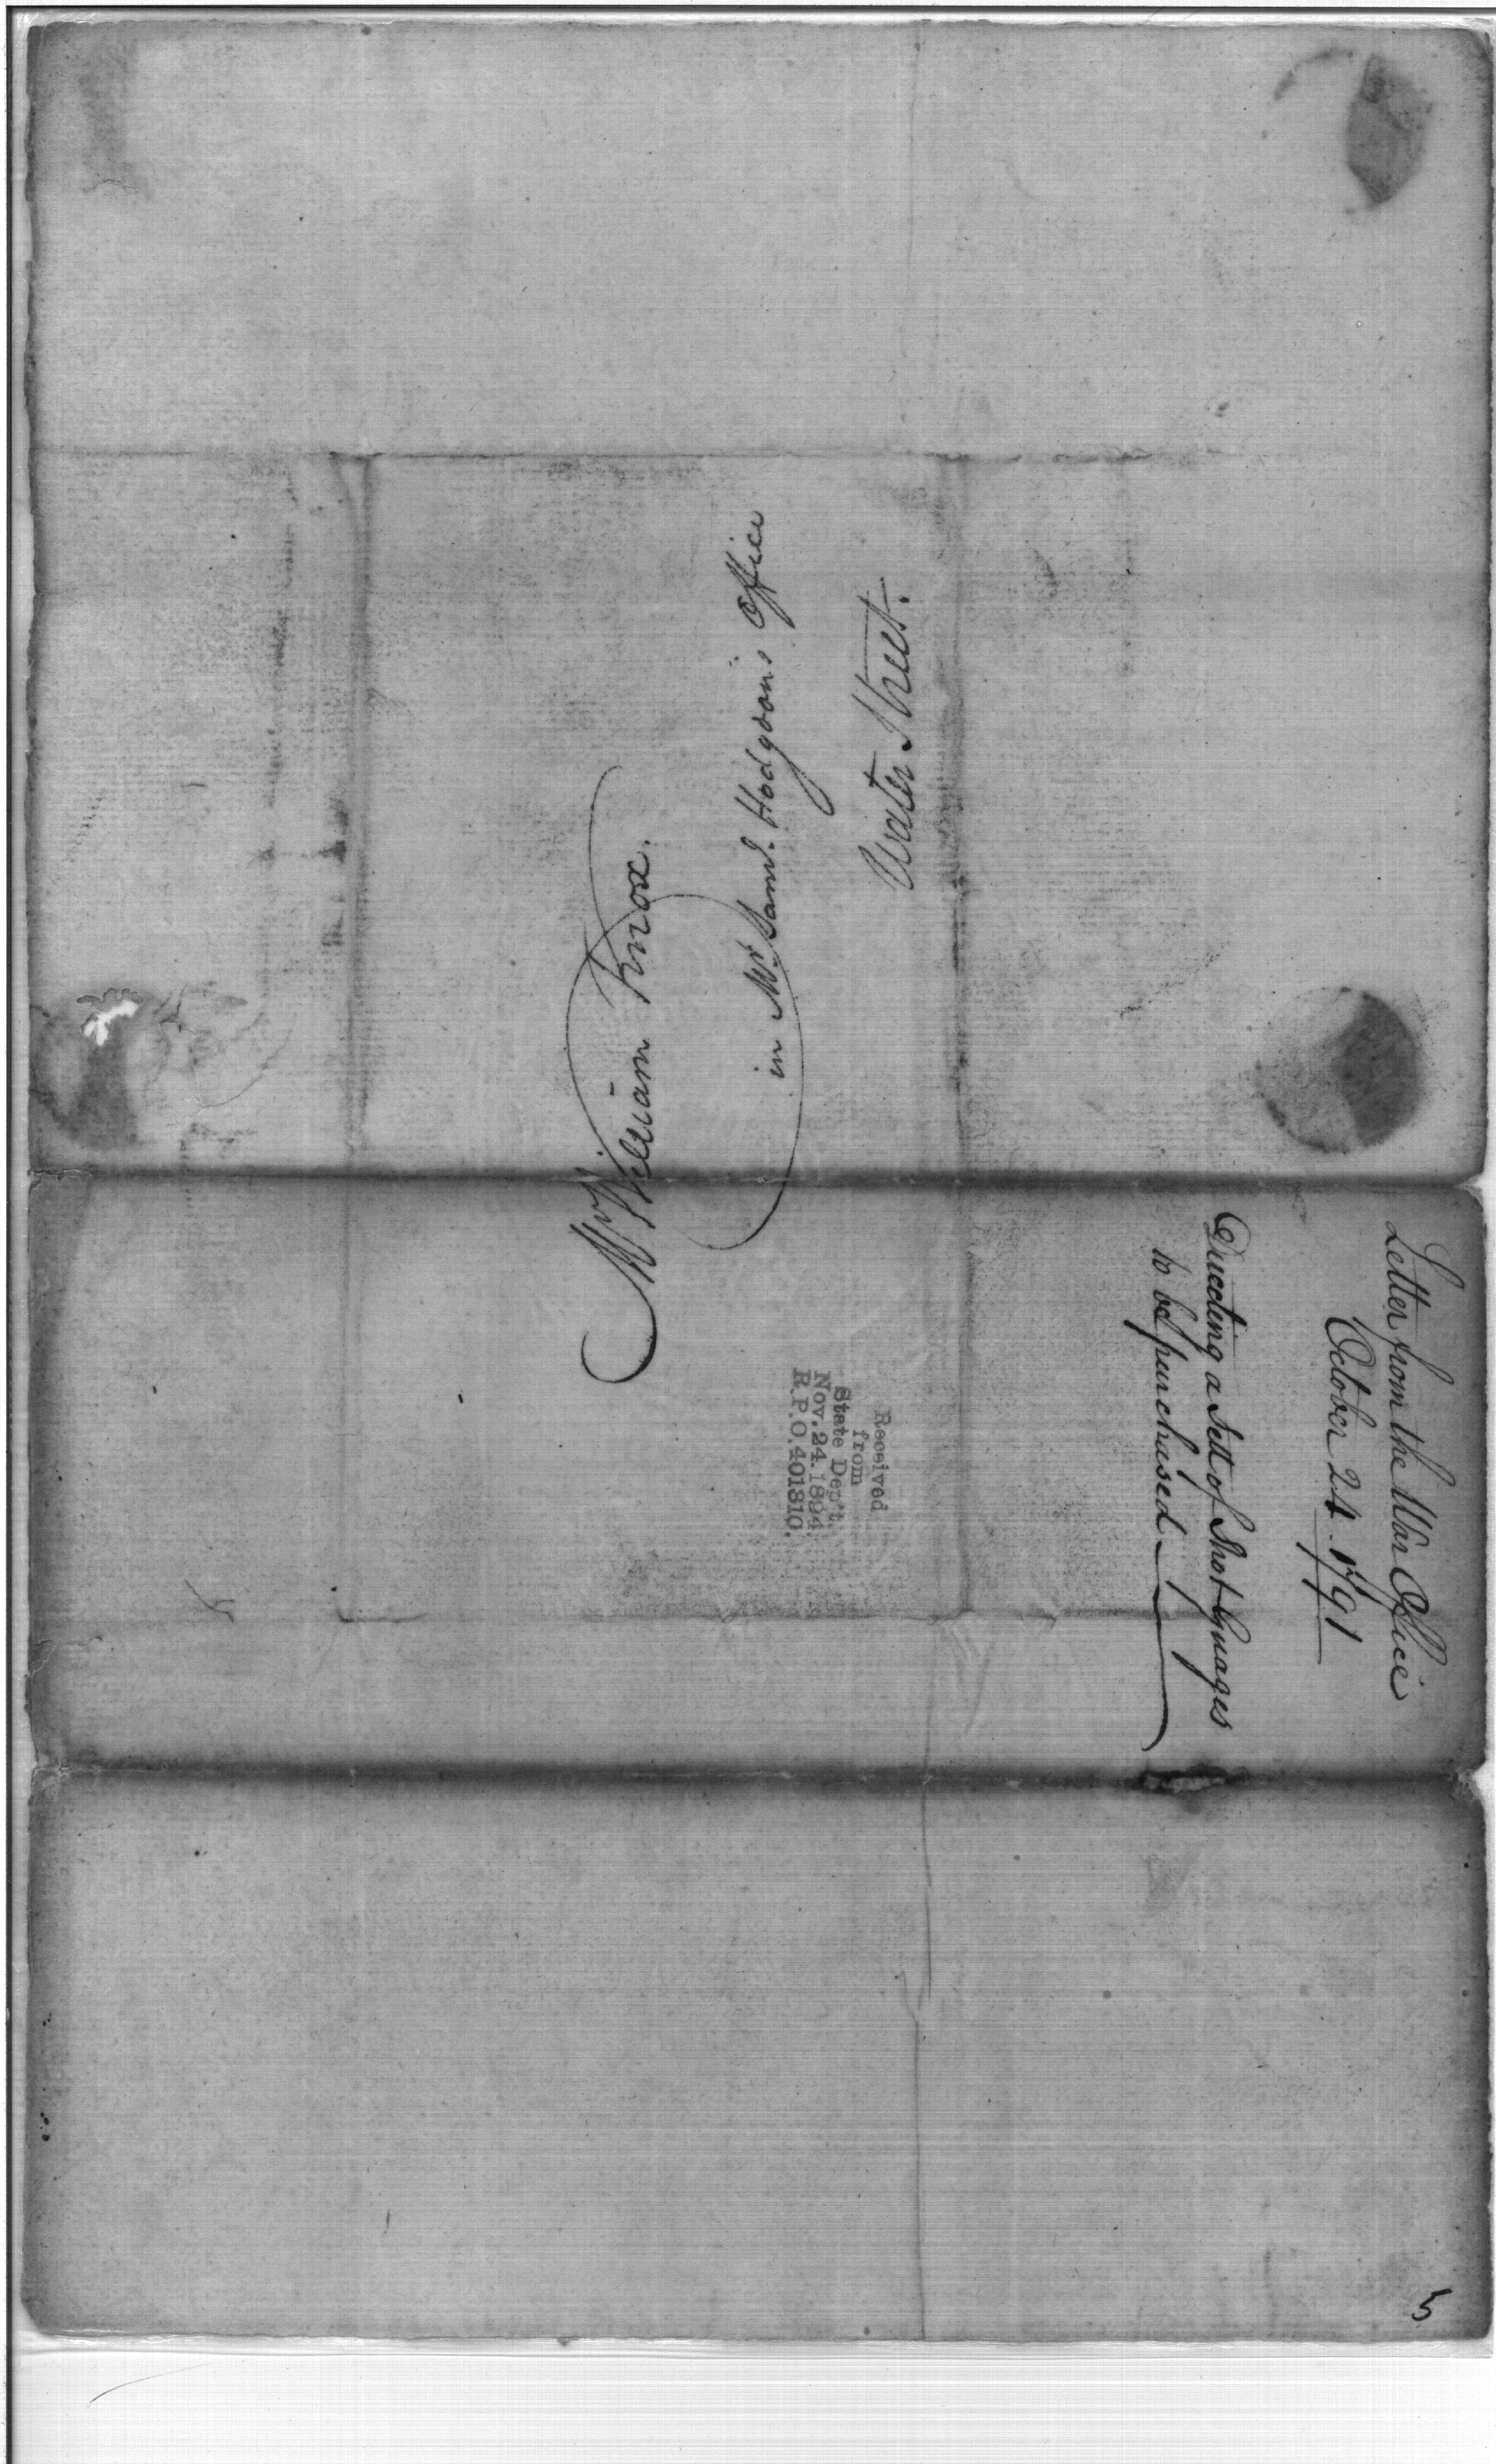 Mr. William Knox.
in Mr. Saml. Hodgdons Office
Water Street.
Letter from the War Office
October 24. 1791
Directing a Sett of Shot Guages
to be purchased
Received
from
State Dep't.
Nov. 24. 1894
R.P.O. 401310.
5